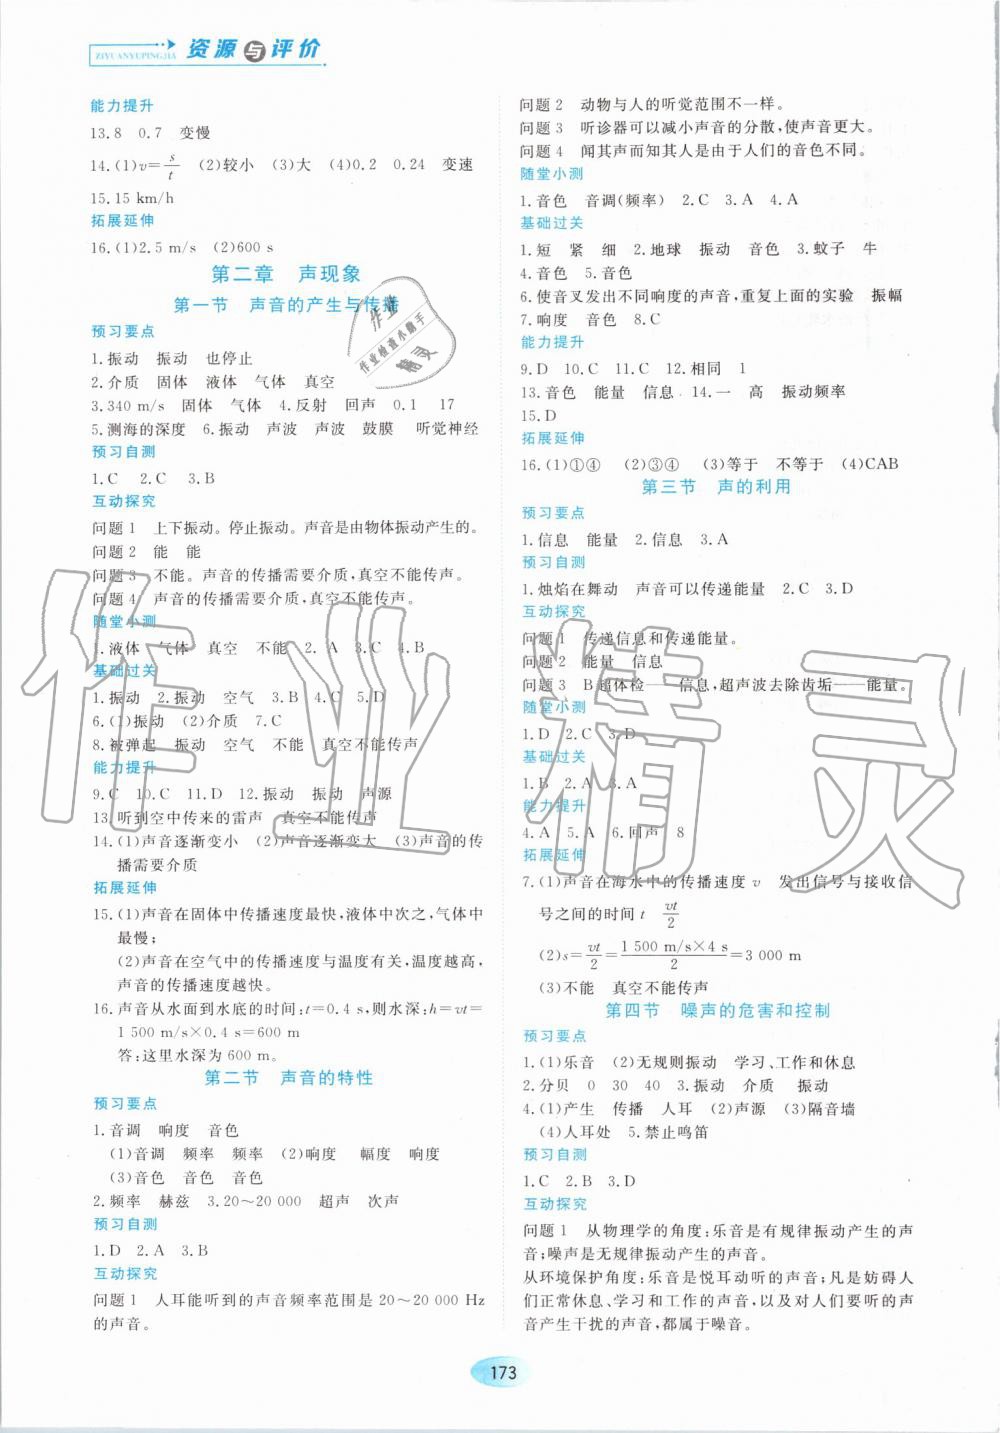 ZIYUANYUPINGJIA
资源与评价
能力提升
13.8 0.7 变慢
14.(1)v=s/t (2)较小 (3)大 (4)0.2 0.24 变速
15.15 km/h
拓展延伸
16.(1)2.5 m/s (2)600 s
第二章 声现象
第一节 声音的产生与传播
预习要点
1.振动 振动 也停止
2.介质 固体 液体 气体 真空
3.340 m/s 固体 气体 4.反射 回声 0.1 17
5.测海的深度 6.振动 声波 声波 鼓膜 听觉神经
预习自测
1.C 2.C 3.B
互动探究
问题1 上下振动。停止振动。声音是由物体振动产生的。
问题2 能 能
问题3 不能。声音的传播需要介质,真空不能传声。
问题4 声音的传播需要介质,真空不能传声。
随堂小测
1.液体 气体 真空 不能 2.A 3.C 4.B
基础过关
1.振动 2.振动 空气 3.B 4.C 5.D
6.(1)振动 (2)介质 7.C
8.被弹起 振动 空气 不能 真空不能传声
能力提升
9.C 10.C 11.D 12.振动 振动 声源
13.听到空中传来的雷声 真空不能传声
14.(1)声音逐渐变小 (2)声音逐渐变大 (3)声音的传
播需要介质
拓展延伸
15.(1)声音在固体中传播速度最快,液体中次之,气体中
最慢;
(2)声音在空气中的传播速度与温度有关,温度越高,
声音的传播速度越快。
16.声音从水面到水底的时间:t=0.4 s,则水深:h=vt=
1 500 m/s×0.4 s=600 m
答:这里水深为600 m。
第二节 声音的特性
预习要点
1.音调 响度 音色
(1)音调 频率 频率 (2)响度 幅度 响度
(3)音色 音色 音色
2.频率 赫兹 3.20～20 000 超声 次声
预习自测
1.D 2.A 3.B
互动探究
问题1 人耳能听到的声音频率范围是20～20 000 Hz
的声音。
问题2 动物与人的听觉范围不一样。
问题3 听诊器可以减小声音的分散,使声音更大。
问题4 闻其声而知其人是由于人们的音色不同。
随堂小测
1.音色 音调(频率) 2.C 3.A 4.A
基础过关
1.短 紧 细 2.地球 振动 音色 3.蚊子 牛
4.音色 5.音色
6.使音叉发出不同响度的声音,重复上面的实验 振幅
7.响度 音色 8.C
能力提升
9.D 10.C 11.C 12.相同 1
13.音色 能量 信息 14.一 高 振动频率
15.D
拓展延伸
16.(1)①④ (2)③④ (3)等于 不等于 (4)CAB
第三节 声的利用
预习要点
1.信息 能量 2.信息 3.A
预习自测
1.烛焰在舞动 声音可以传递能量 2.C 3.D
互动探究
问题1 传递信息和传递能量。
问题2 能量 信息
问题3 B超体检——信息,超声波去除齿垢——能量。
随堂小测
1.D 2.C 3.D
基础过关
1.B 2.A 3.A
能力提升
4.A 5.A 6.回声 8
拓展延伸
7.(1)声音在海水中的传播速度v 发出信号与接收信
号之间的时间t vt/2
(2)s=vt/2=1 500 m/s×4 s/2=3 000 m
(3)不能 真空不能传声
第四节 噪声的危害和控制
预习要点
1.(1)乐音 (2)无规则振动 学习、工作和休息
2.分贝 0 30 40 3.振动 介质 振动
4.(1)产生 传播 人耳 (2)声源 (3)隔音墙
(4)人耳处 5.禁止鸣笛
预习自测
1.C 2.B 3.D
互动探究
问题1 从物理学的角度:乐音是有规律振动产生的声
音;噪声是无规律振动产生的声音。
从环境保护角度:乐音是悦耳动听的声音;凡是妨碍人
们正常休息、学习和工作的声音,以及对人们要听的声
音产生干扰的声音,都属于噪音。
173
作业精灵
作业
作业检查小助手
精灵